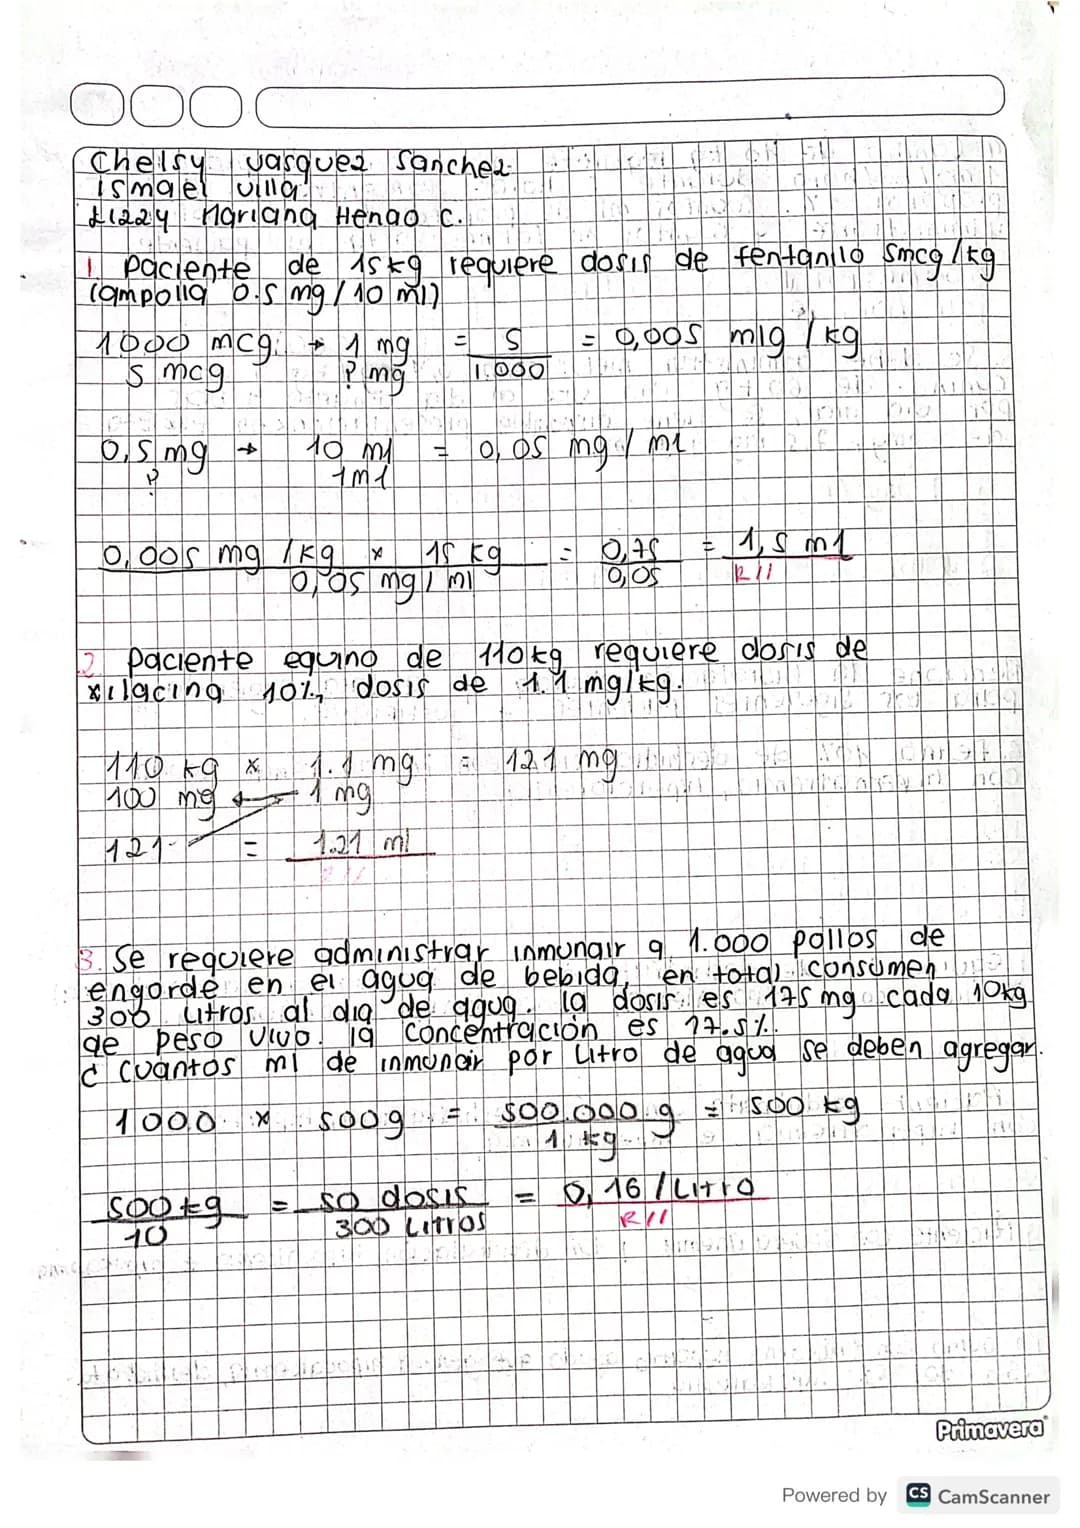 Chelsy Vasquez Sanchez
ismael villa
Lizzy Mariana Henao C.
1. Paciente de 15kg requiere dosis de fentanilo 5mcg/kg
(ampolla 0.5 mg/10 ml)
1000 mcg → 1 mg = 5/1.000 = 0,005 mig/kg
5 mcg ? mg
0,5 mg → 10 ml = 0,05 mg/ml
? 1ml
0,005 mg/kg x 15 kg = 0,75 = 1,5 ml
0,05 mg/ml 0,05 R//
2. Paciente equino de 110kg requiere dosis de
xilacina 10%, dosis de 1.1 mg/kg.
110 kg x 1.1 mg = 121 mg
100 mg ← 1 mg
121 = 1.21 ml
R//
3. Se requiere administrar inmunair a 1.000 pollos de
engorde en el agua de bebida, en total consumen
300 Litros al dia de agua. la dosis es 175 mg cada 10kg
de peso vivo. la concentración es 17.5%.
¿ Cuantos ml de inmunair por Litro de agua se deben agregar.
1000 x 500g = 500.000 g = 500 kg
1 kg
500kg = 50 dosis = 0,16 /Litro
10 300 Litros R//
Primavera
Powered by CS CamScanner